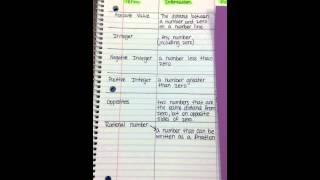 Term Information
Absolute Value The distance between
a number and zero
on a number line.
Integer any number,
including zero
Negative Integer a number less than
zero
Positive Integer a number greater
than zero
Opposites two numbers that are
the same distance from
zero, but on opposite
sides of zero.
Rational Number a number that can be
written as a fraction